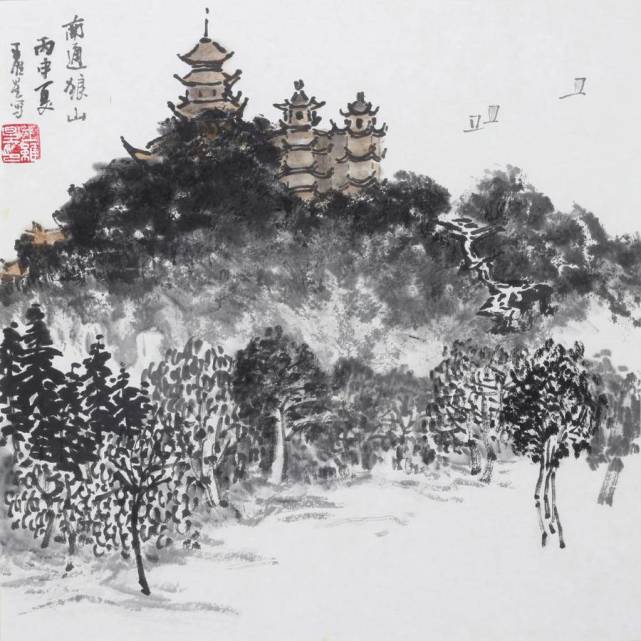 南通狼山
丙申夏
王 写